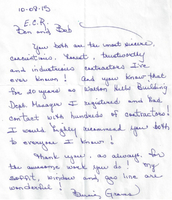 10-09-15
E.C.R.
Ben and Bob
You both are the most sincere,
conscientious, honest, trustworthy
and industrious contractors I've
ever known! And you know that
for 20 years as Walton Hills Building
Dept Manager I registered and had
contact with hundreds of contractors!
I would highly recommend you both
to everyone I know!
Thank you, as always, for
the awesome work you do! My
soffit, window and gas line are
wonderful!